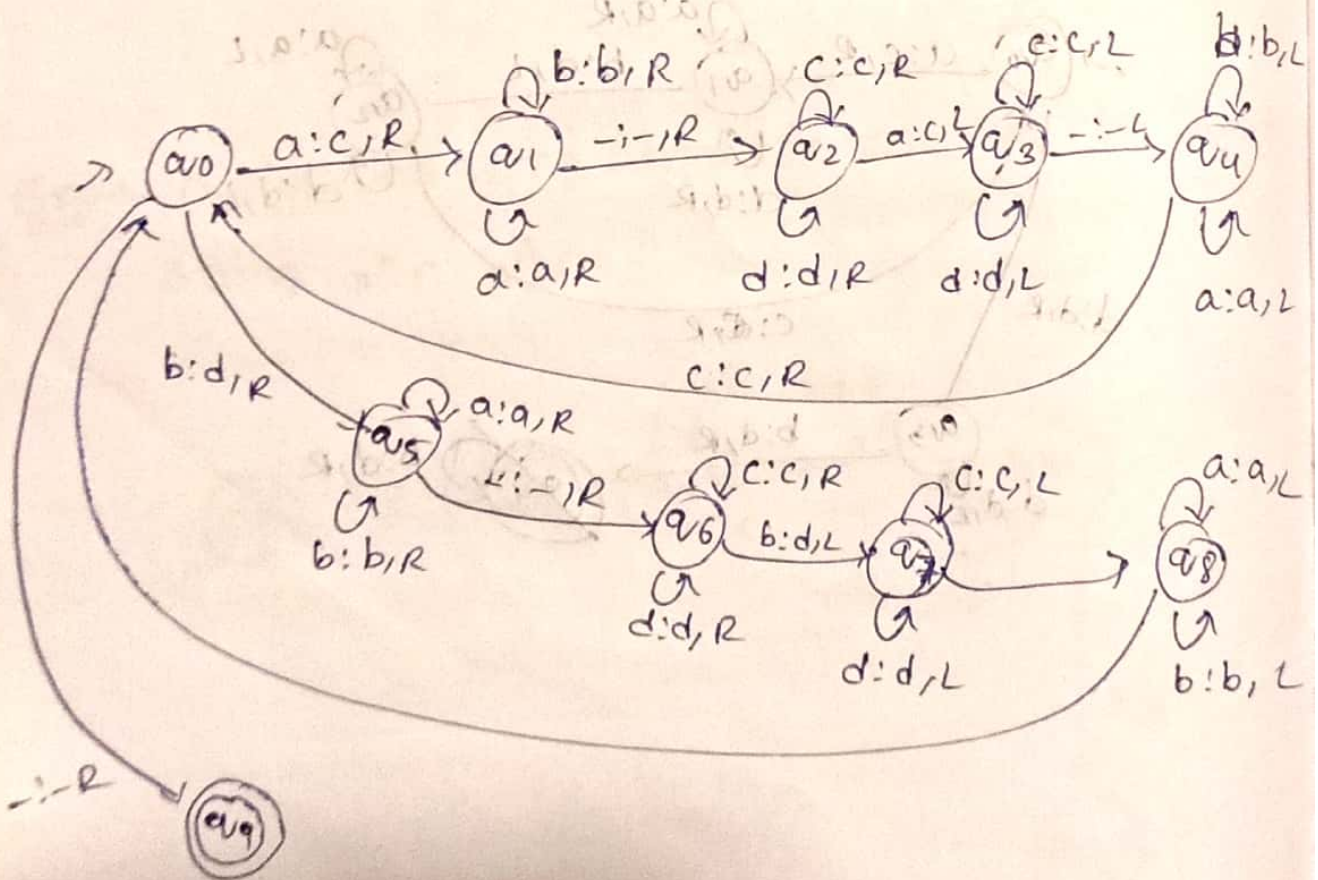 b:b,R
c:c,R
c:c,L
b:b,L
> q0
a:c,R
q1
-:-,R
q2
a:c,L
q3
-:-L
q4
a:a,R
d:d,R
d:d,L
a:a,L
b:d,R
c:c,R
q5
a:a,R
-,R
b:b,R
q6
c:c,R
b:d,L
q7
c:c,L
a:a,L
q8
d:d,R
d:d,L
b:b,L
-:-R
q9